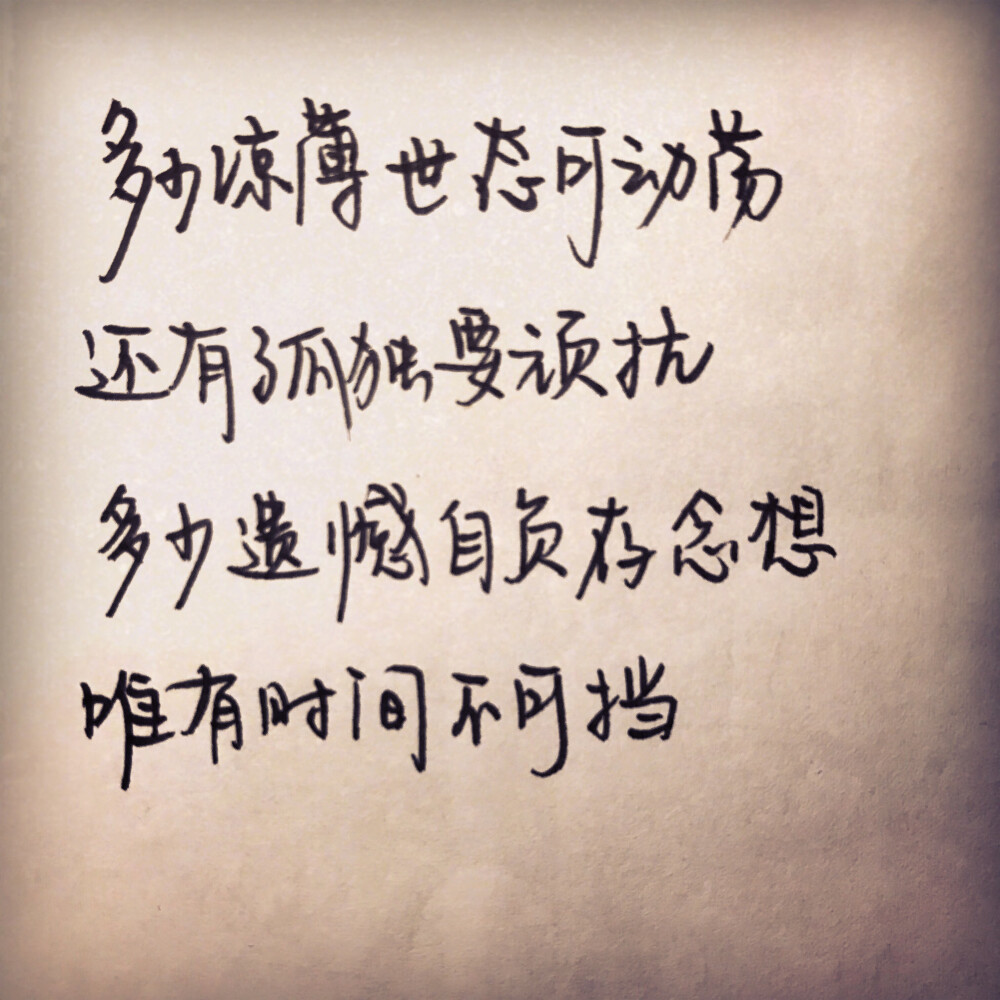 多少凉薄世态可动荡
还有孤独要顽抗
多少遗憾自负存念想
唯有时间不可挡